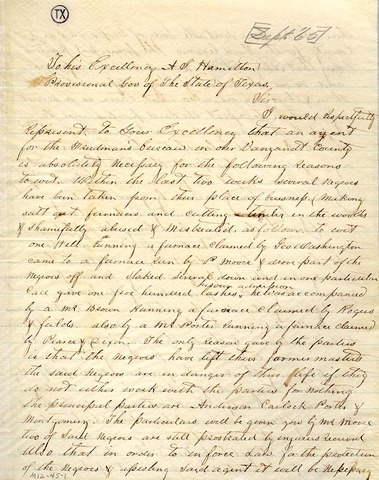 TX
[Sept 65]
To his Excellency A J Hamilton
Provisional Gov of The State of Texas,
Sir
I would respectfully
Represent to Your Excellency that an agent
for the Freedmans Bureau in our Vanzandt County
is absolutely Necessary for the following reasons
to wit. Within the last two weeks several Negroes
have been taken from their place of business (Making
salt at furnaces and cutting timber in the woods
& shamefully abused & Mistreated, as follows. to wit
one Hell running a furnace claimed by Geo Washington
came to a furnace run by P Moore & drove part of the
Negroes off and Staked several down and in one particular
Case gave one five hundred lashes. he was accompanied
by a Mr. Brown Running a furnace claimed by Rogers
& fields. also by a Mr Porter running a furnace claimed
by Pearce & Dixon. The only reason given by the parties
is that the Negroes have left their former masters
the said Negroes are in danger of their life if they
do not either work with the parties for nothing
the principal parties are Anderson Carlock Porter &
Montgomery. The particulars will be given you by Mr Moore
two of said Negroes are still prostrated by injuries received
Also that in order to inforce Law for the protection
of the Negroes & assisting said agent it will be Necessary
M12-45-1